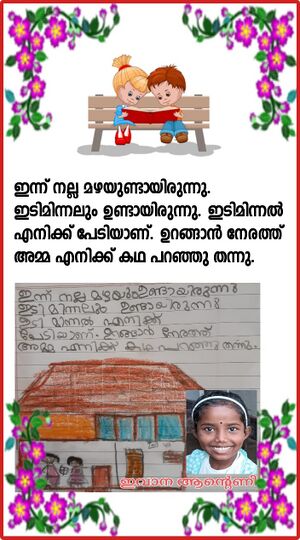 ഇന്ന് നല്ല മഴയുണ്ടായിരുന്നു.
ഇടിമിന്നലും ഉണ്ടായിരുന്നു. ഇടിമിന്നൽ
എനിക്ക് പേടിയാണ്. ഉറങ്ങാൻ നേരത്ത്
അമ്മ എനിക്ക് കഥ പറഞ്ഞു തന്നു.
ഇന്ന് നല്ല മഴയും ഉണ്ടായിരുന്നു
ഇടി മിന്നലും ഉണ്ടായിരുന്നു
ഇടി മിന്നൽ എനിക്ക്
പേടിയാണ്. ഉറങ്ങാൻ നേരത്ത്
അമ്മ എനിക്ക് കഥ പറഞ്ഞു തന്നു.
ഇവാന ആന്റെണി